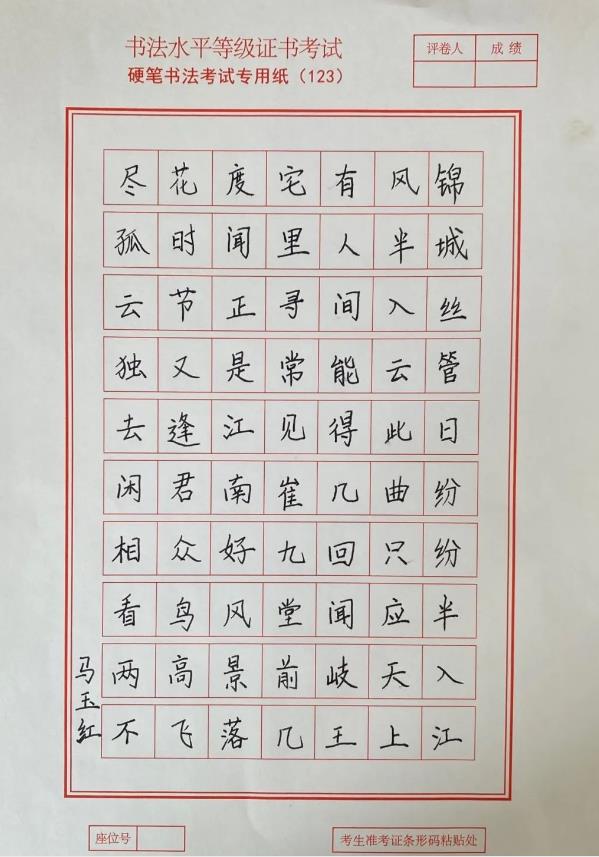 书法水平等级证书考试
硬笔书法考试专用纸（123）
评卷人 成绩
锦城丝管日纷纷半入江
风半入云此曲只应天上
有人间能得几回闻岐王
宅里寻常见崔九堂前几
度闻正是江南好风景落
花时节又逢君众鸟高飞
尽孤云独去闲相看两不
马玉红
座位号
考生准考证条形码粘贴处